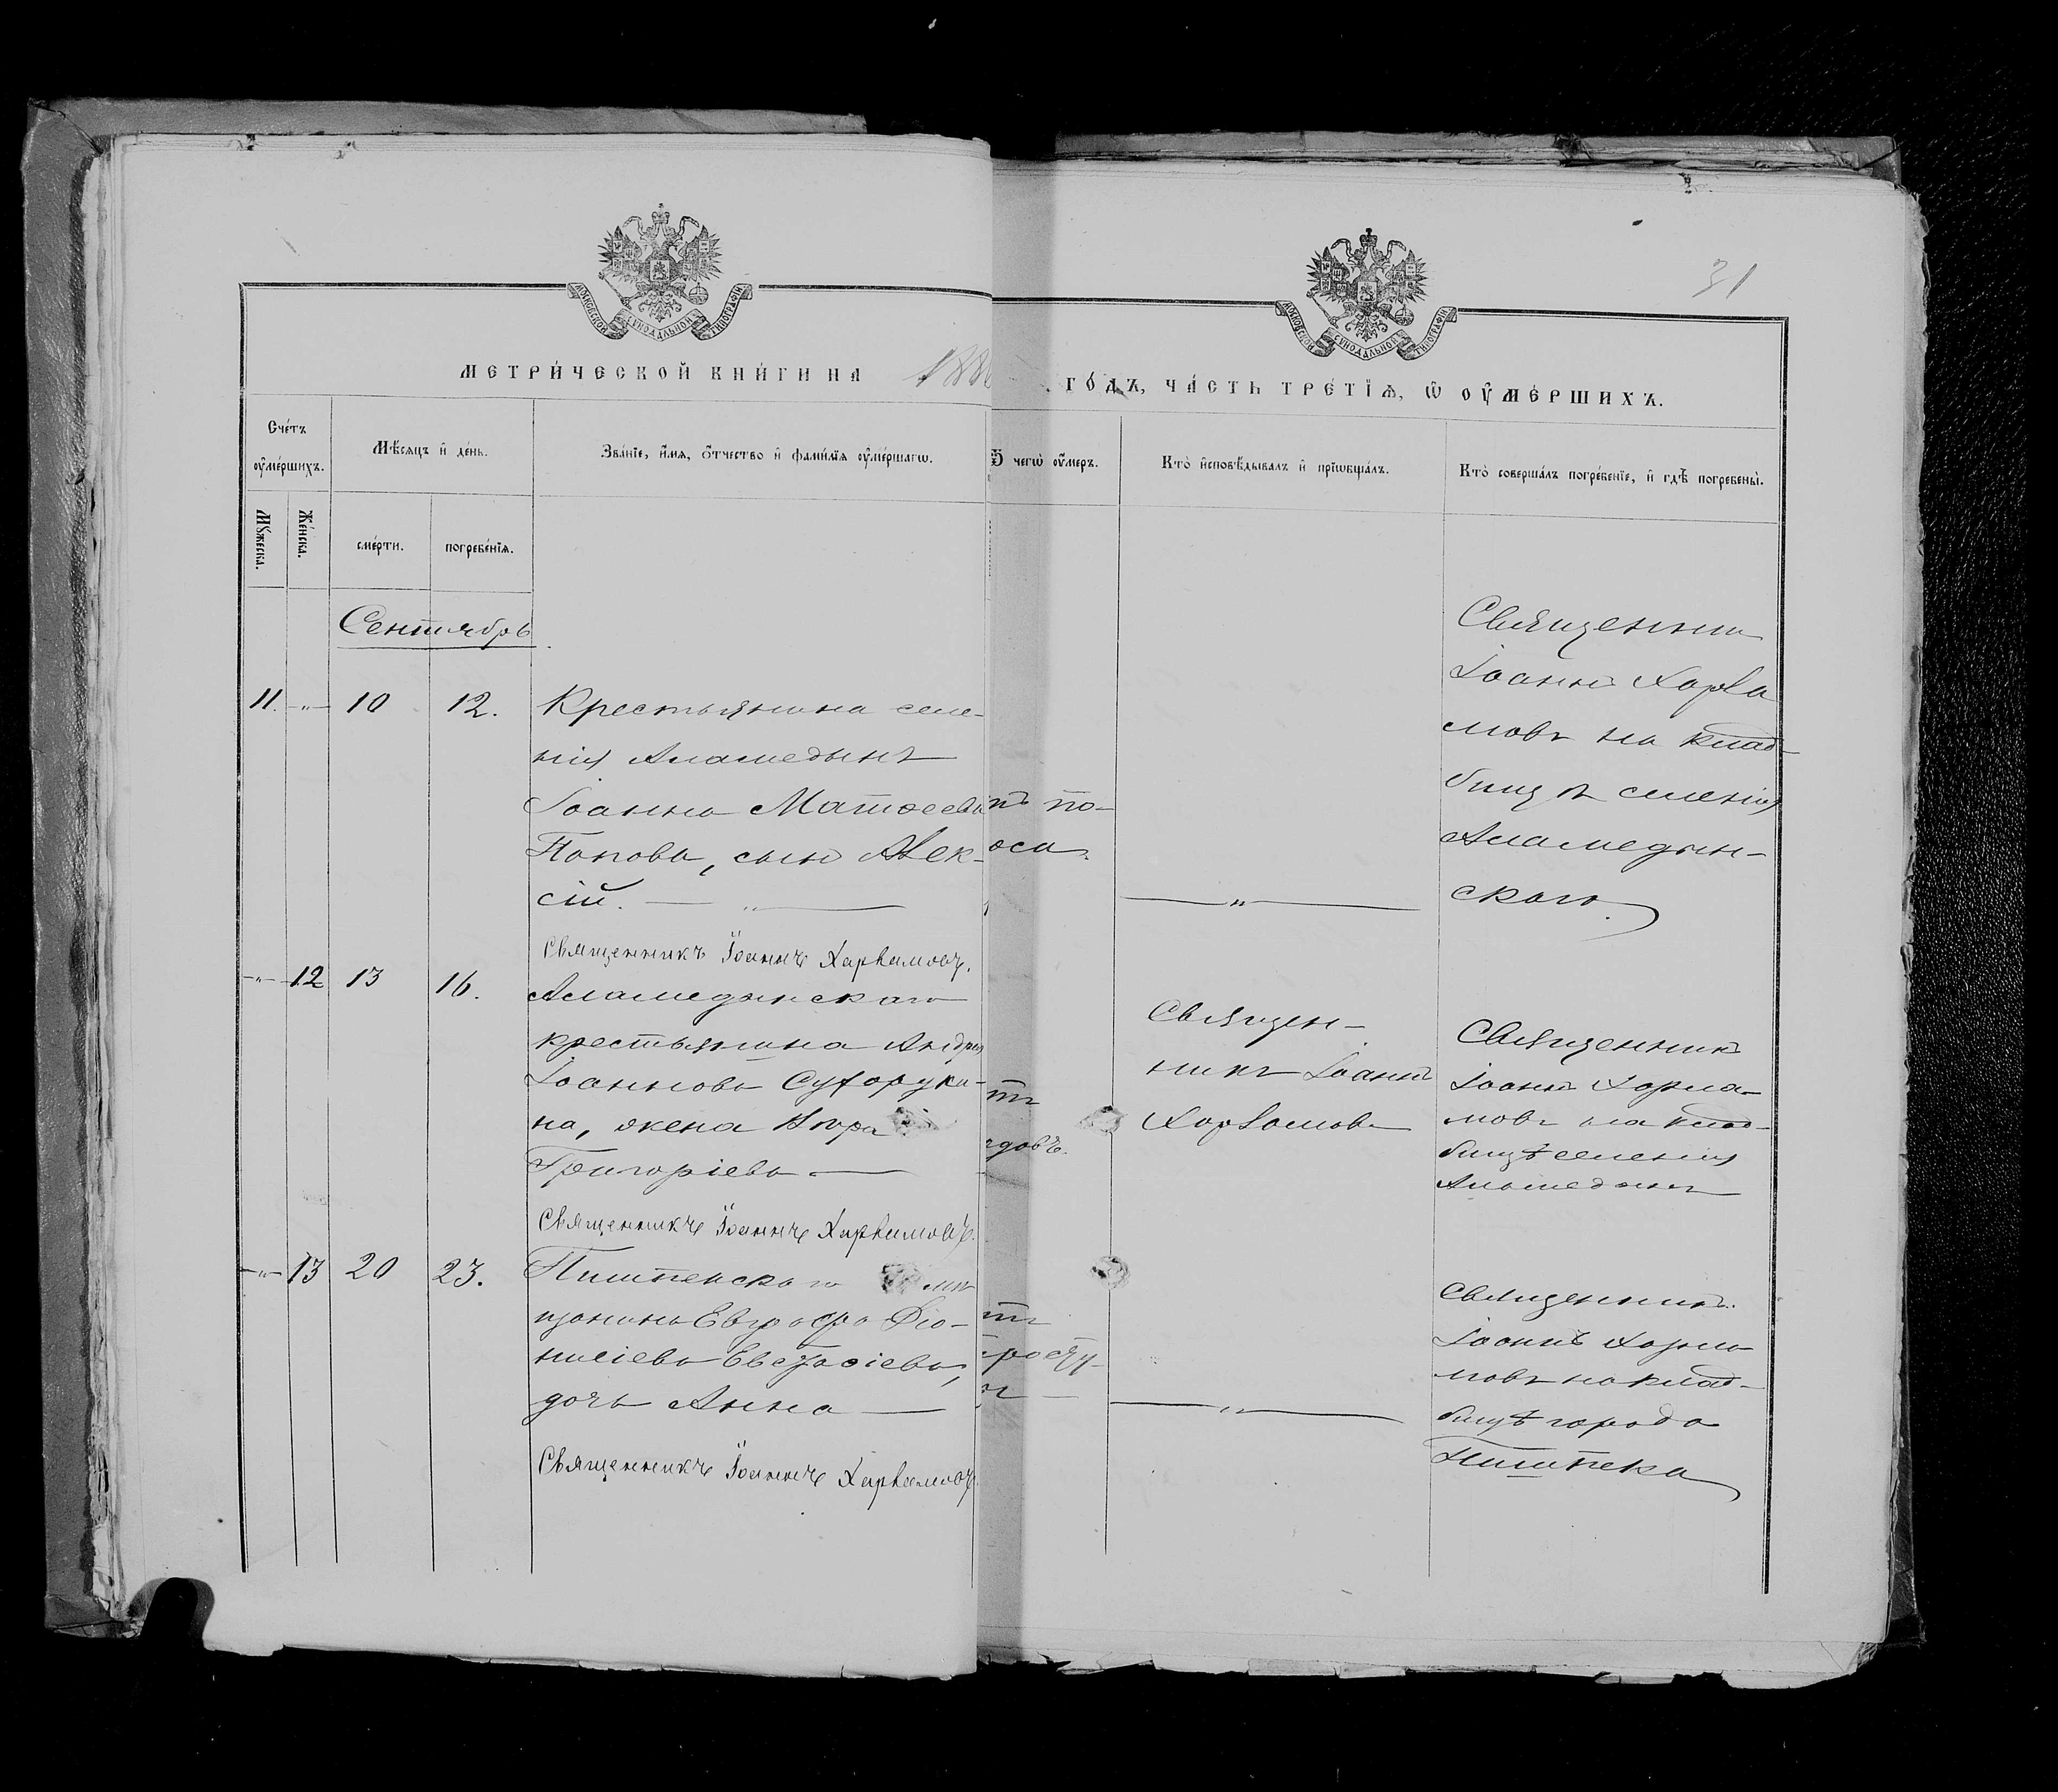 31
МОСКОВСКОЙ СУНОДАЛЬНОЙ ТИПОГРАФІИ
МОСКОВСКОЙ СУНОДАЛЬНОЙ ТИПОГРАФІИ
МЕТРИ́ЧЕСКОЙ КНИ́ГИ НА 188
ГО́ДЪ, ЧА́СТЬ ТРЕ́ТІѦ, Ѡ҆ ОУ҆МЕ́РШИХЪ.
Сче́тъ
оу҆ме́ршихъ.
Мѣ́сяцъ и҆ де́нь.
Зва́ніе, и҆́мя, ѻ҆́тчество и҆ фами́лїя оу҆ме́ршагѡ.
Ѿ чегѡ̀ оу҆́меръ.
Кто̀ и҆сповѣ́дывалъ и҆ прїѡбща́лъ.
Кто̀ соверша́лъ погребе́нїе, и҆ гдѣ̀ погребены̀.
Мꙋ́жеска.
Же́нска.
сме́рти.
погребе́нїѧ.
Сентябрь
11. -"- 10 12.
Крестьянина селе-
нія Аламедынъ
Іоанна Матѳеева
Попова, сынъ Алек-
сій. — " —
по-
оса.
— " —
Священникъ
Іоаннъ Харла
мовъ на клад-
бищѣ селенія
Аламедын-
скаго.
Священникъ Іоаннъ Харламовъ.
-"- 12 13 16.
Аламедынскаго
крестьянина Андрея
Іоаннова Сухоруки-
на, жена
Григоріева —
тъ
довъ.
Священ-
никъ Іоаннъ
Харламовъ
Священникъ
Іоаннъ Харла-
мовъ на клад-
бищѣ селенія
Аламедынъ
Священникъ Іоаннъ Харламовъ.
-"- 13 20 23.
Пишпекскаго мѣ
щанина Евграфа Діо-
нисіева
дочь Анна —
тъ
просту-
— " —
Священникъ
Іоаннъ Харла-
мовъ на клад-
бищѣ города
Пишпека
Священникъ Іоаннъ Харламовъ.